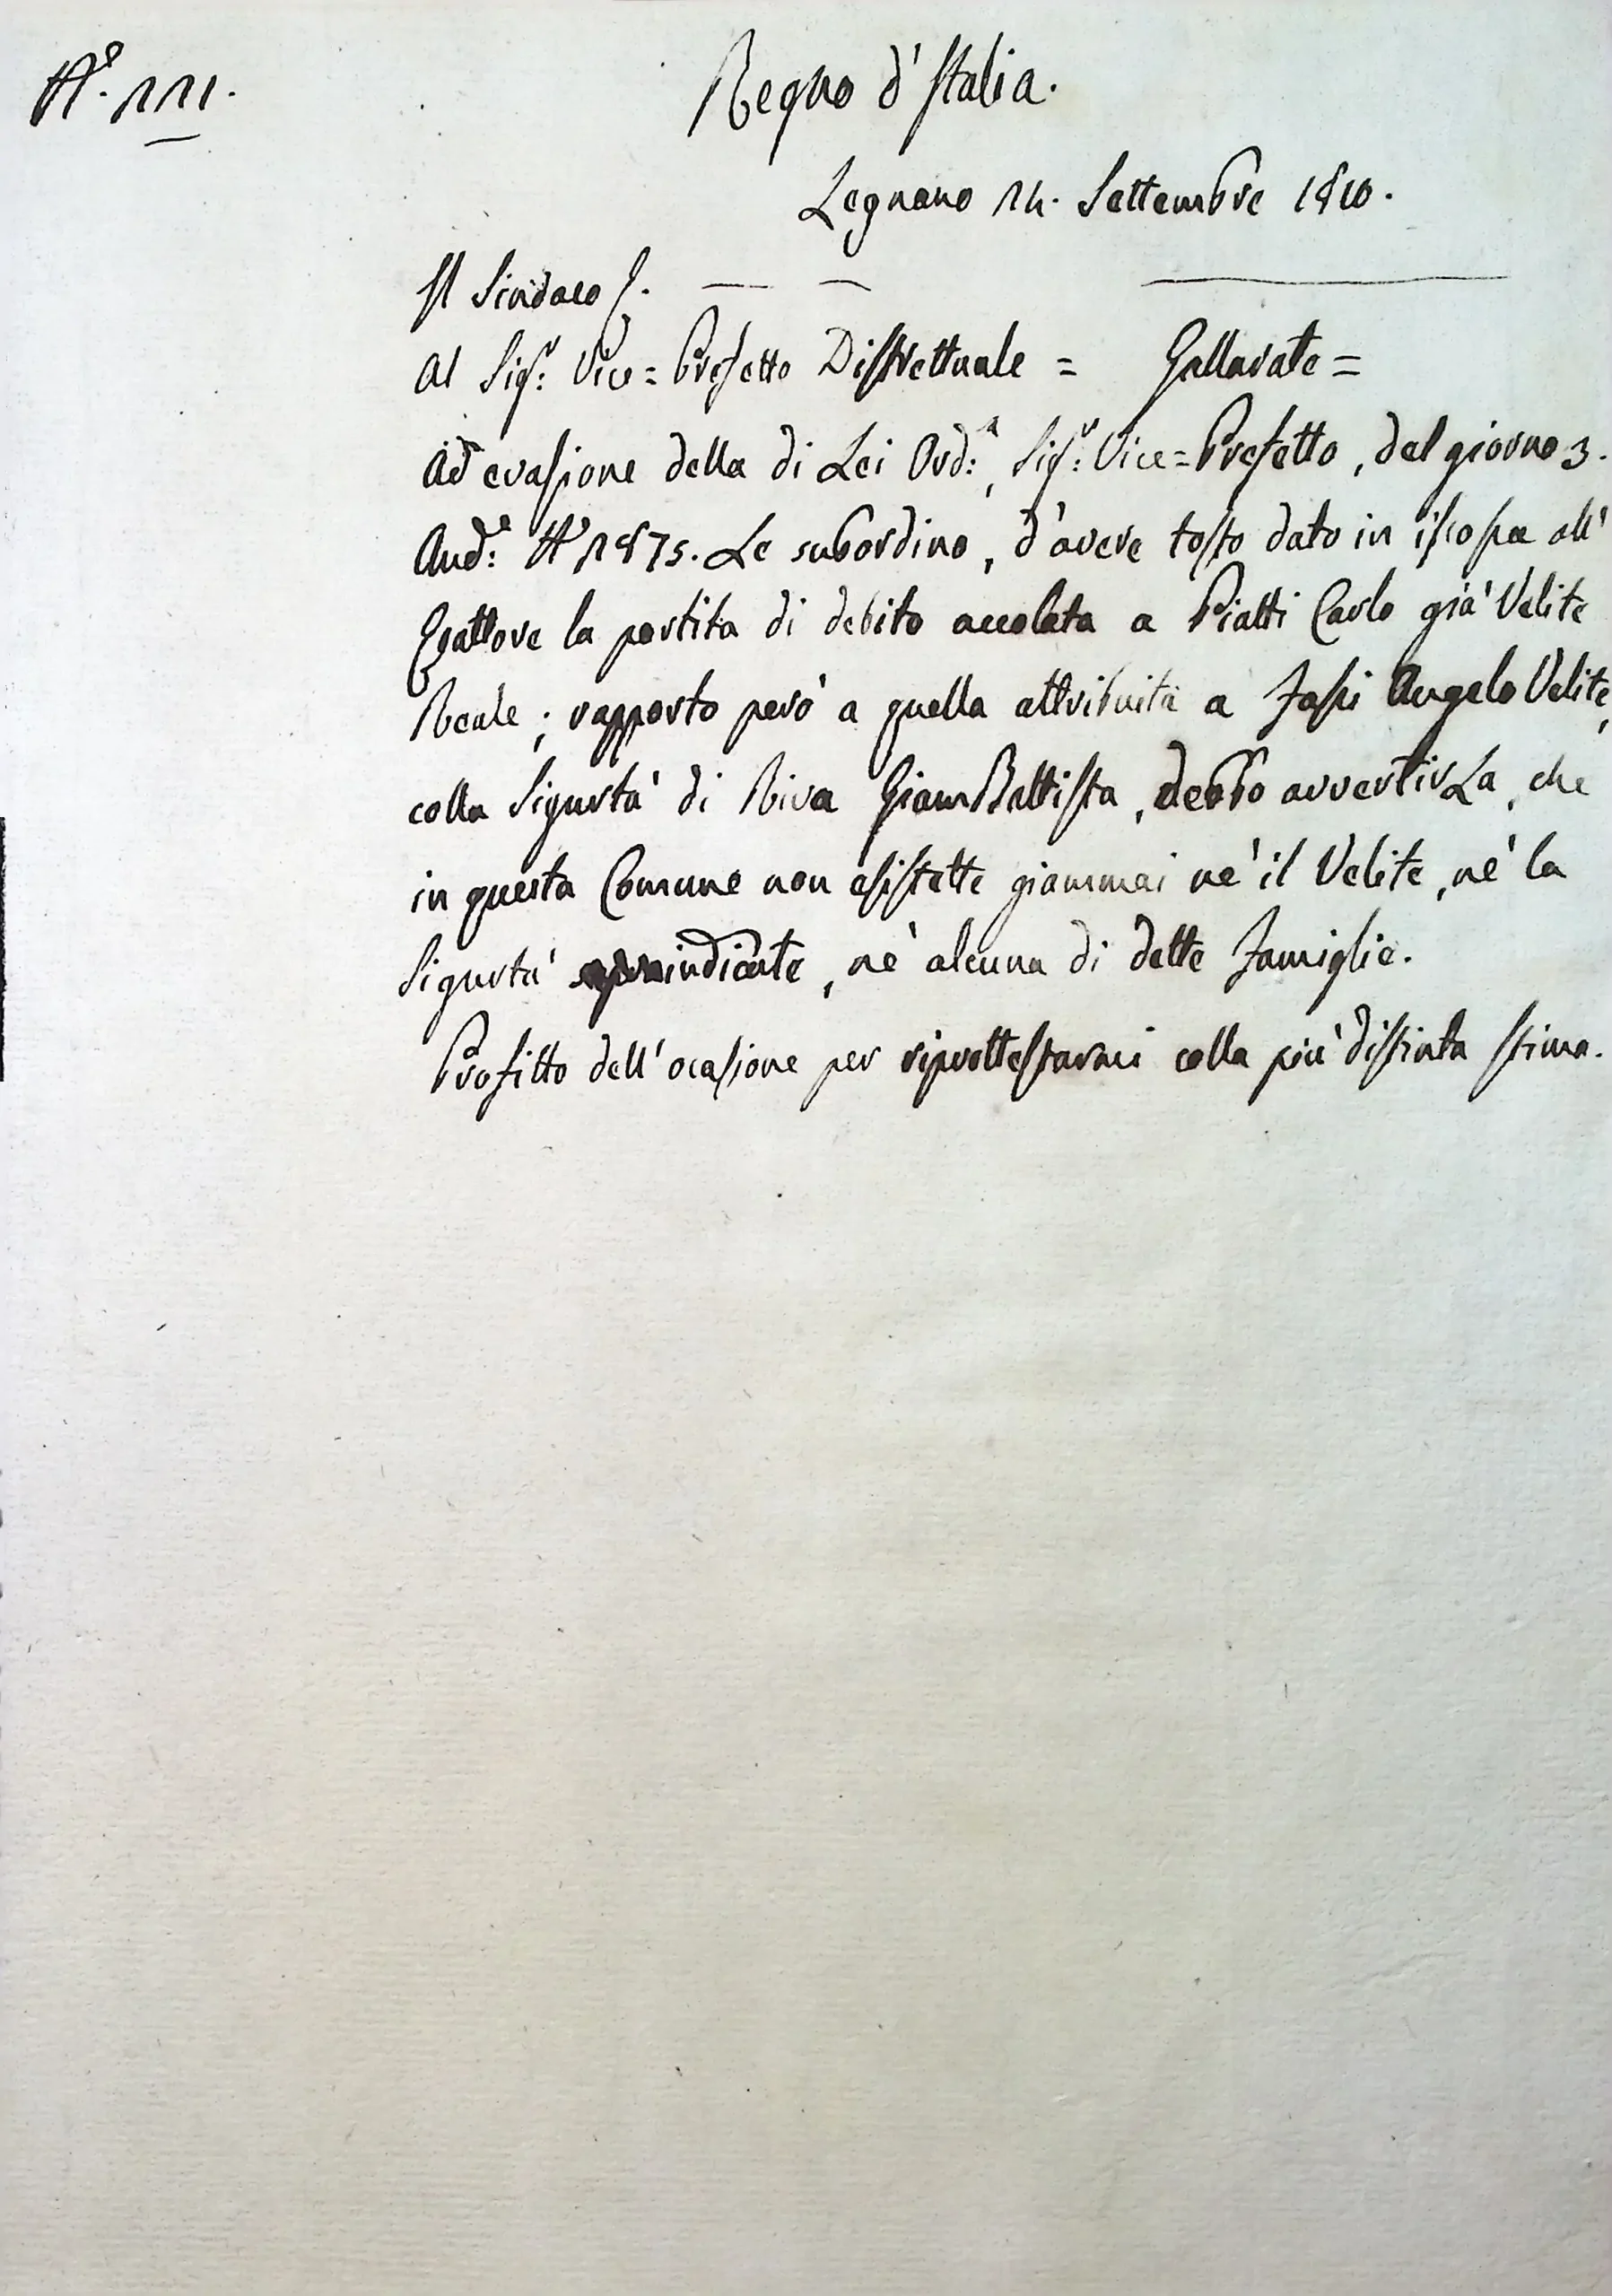 N.° 111.
Regno d'Italia.
Legnano 14. Settembre 1810.
Il Sindaco
Al Sig.r Vice=Prefetto Distrettuale = Gallarate =
Ad evasione della di Lei Ord.a, Sig.r Vice=Prefetto, del giorno 3.
And.e N° 1875. Le subordino, d'avere tosto dato in iscossa all'
Esattore la partita di debito accolata a Piatti Carlo già Velite
Reale; rapporto però a quella attribuita a Fassi Angelo Velite,
colla Sigurtà di Riva GiamBattista, debbo avvertirLa, che
in questa Comune non esistette giammai nè il Velite, nè la
Sigurtà indicate, nè alcuna di dette Famiglie.
Profitto dell'ocasione per riprottestarmi colla più distinta stima.